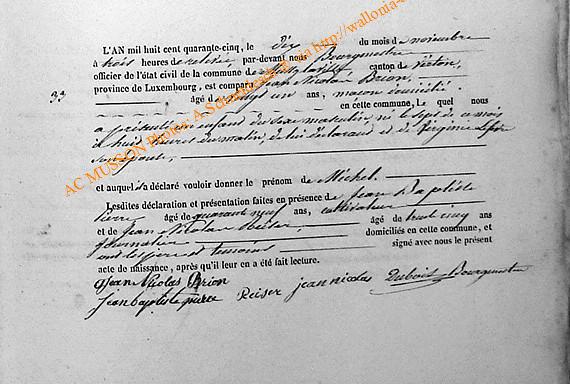 33
L'AN mil huit cent quarante-cinq, le dix du mois de novembre
à trois heures de relevée, par-devant nous Bourgmestre
officier de l'état civil de la commune de canton de Virton,
province de Luxembourg, est comparu Jean Nicolas Brion,
âgé de vingt un ans, maçon domicilié
en cette commune, Lequel nous
a présenté un enfant du sexe masculin né le sept de ce mois
à huit heures du matin, de lui déclarant et de
son épouse,
et auquel il a déclaré vouloir donner le prénom de Michel.
Lesdites déclaration et présentation faites en présence de Jean Baptiste
Pierre âgé de quarante neuf ans, cultivateur
et de Jean Nicolas Reiser, âgé de trente cinq ans
journalier domiciliés en cette commune, et
ont les père et témoins signé avec nous le présent
acte de naissance, après qu'il leur en a été fait lecture.
Jean Nicolas Brion
jean baptiste pierre Reiser jean nicolas Dubois Bourgmestre
AC MUSSON Photos: A.
http://wallonia-